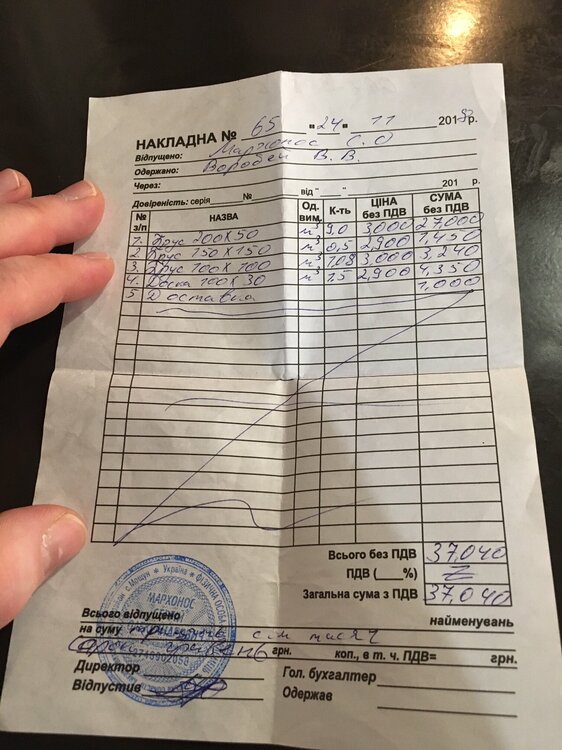 НАКЛАДНА № 65 "24" 11 2018р.
Відпущено: Мархонос С. О
Одержано: Воробей В. В.
Через:
Довіреність: серія № від "___" 201 р.
№ з/п НАЗВА Од. вим. К-ть ЦІНА без ПДВ СУМА без ПДВ
1. Брус 200х50 м³ 9,0 3000 27,000
2 Брус 150х150 м³ 0,5 2,900 1,450
3 Брус 100х100 м³ 1,08 3,000 3,240
4. Доска 100х30 м³ 1,5 2,900 4,350
5 Доставка 1,000
Всього без ПДВ 37,040
ПДВ (___%) Z
Загальна сума з ПДВ 37,040
Всього відпущено найменувань
на суму тридцять сім тисяч
сорок гривень грн. коп., в т. ч. ПДВ= грн.
Директор Гол. бухгалтер
Відпустив Одержав
с. Мощун * Україна * ФІЗИЧНА ОСОБА
МАРХОНОС